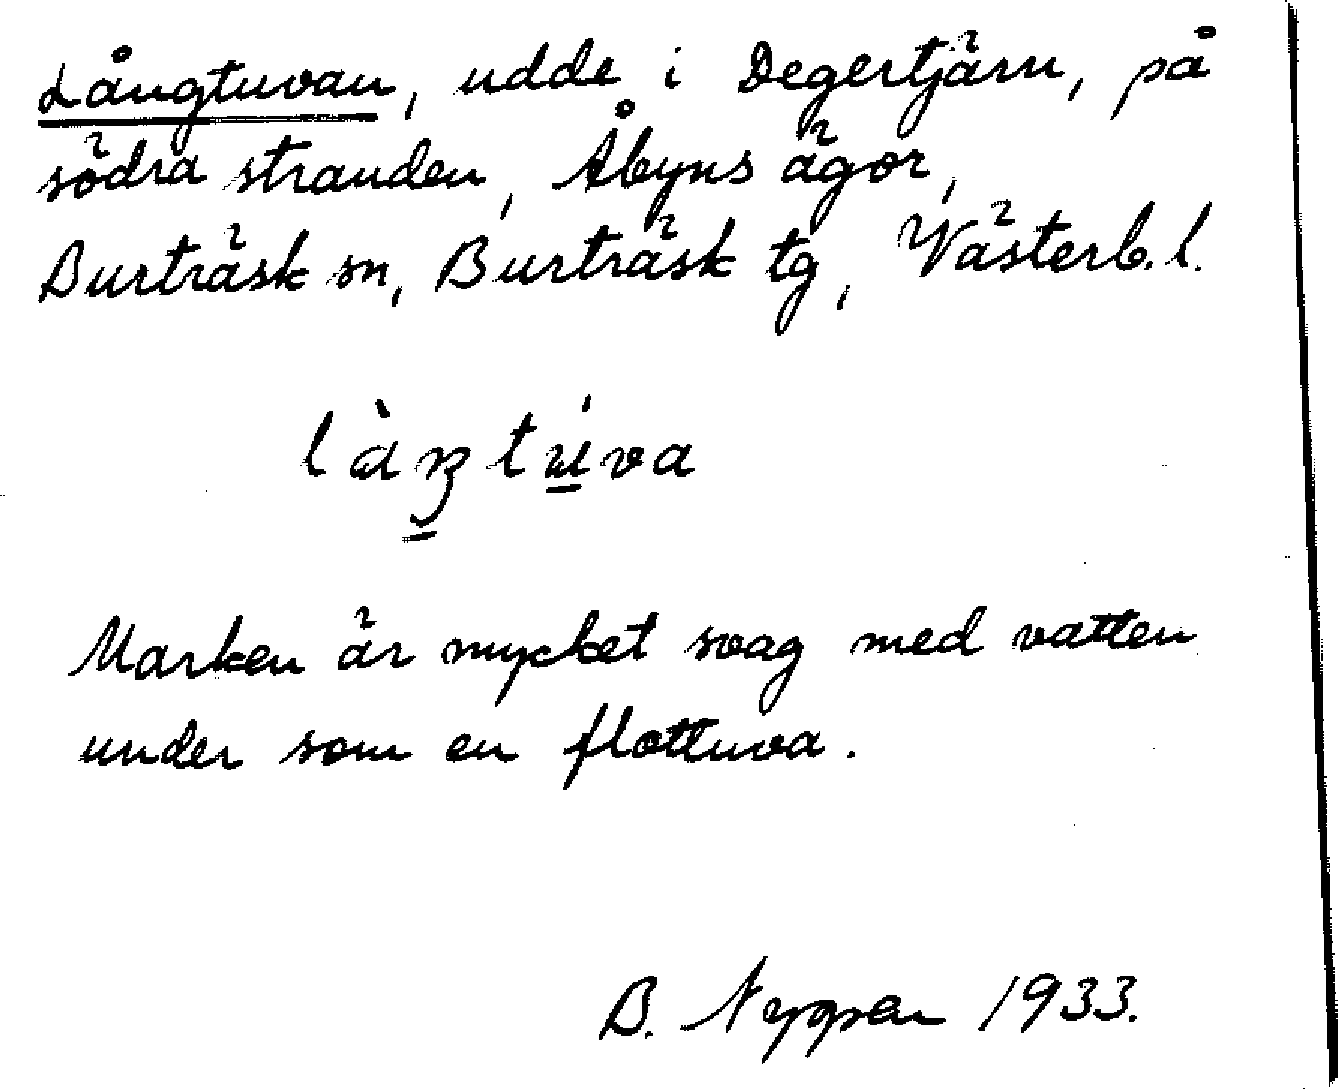 Långtuvan, udde i Degertjärn, på
södra stranden, Åbyns ägor,
Burträsk sn, Burträsk tg, Västerb. l.
Marken är mycket svag med vatten
under som en flottuva.
B. 1933.